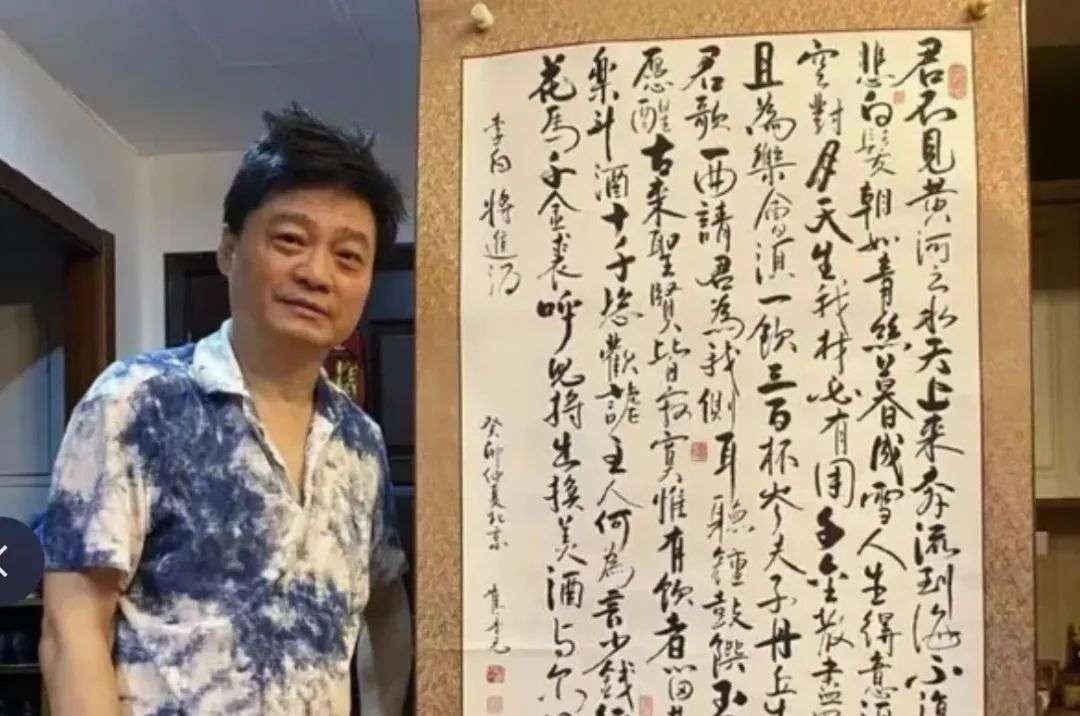 君不見黄河之水天上来奔流到海不復
悲白髮朝如青絲暮成雪人生得意須
空對月天生我材必有用千金散盡還
且為樂會須一飲三百杯岑夫子丹丘生
君歌一曲請君為我側耳聽鐘鼓饌玉
愿醒古来聖賢皆寂寞惟有飲者留其
樂斗酒十千恣歡謔主人何為言少錢
花馬千金裘呼兒將出換美酒与尔同
李白 將進酒
癸卯仲夏北京 崔永元